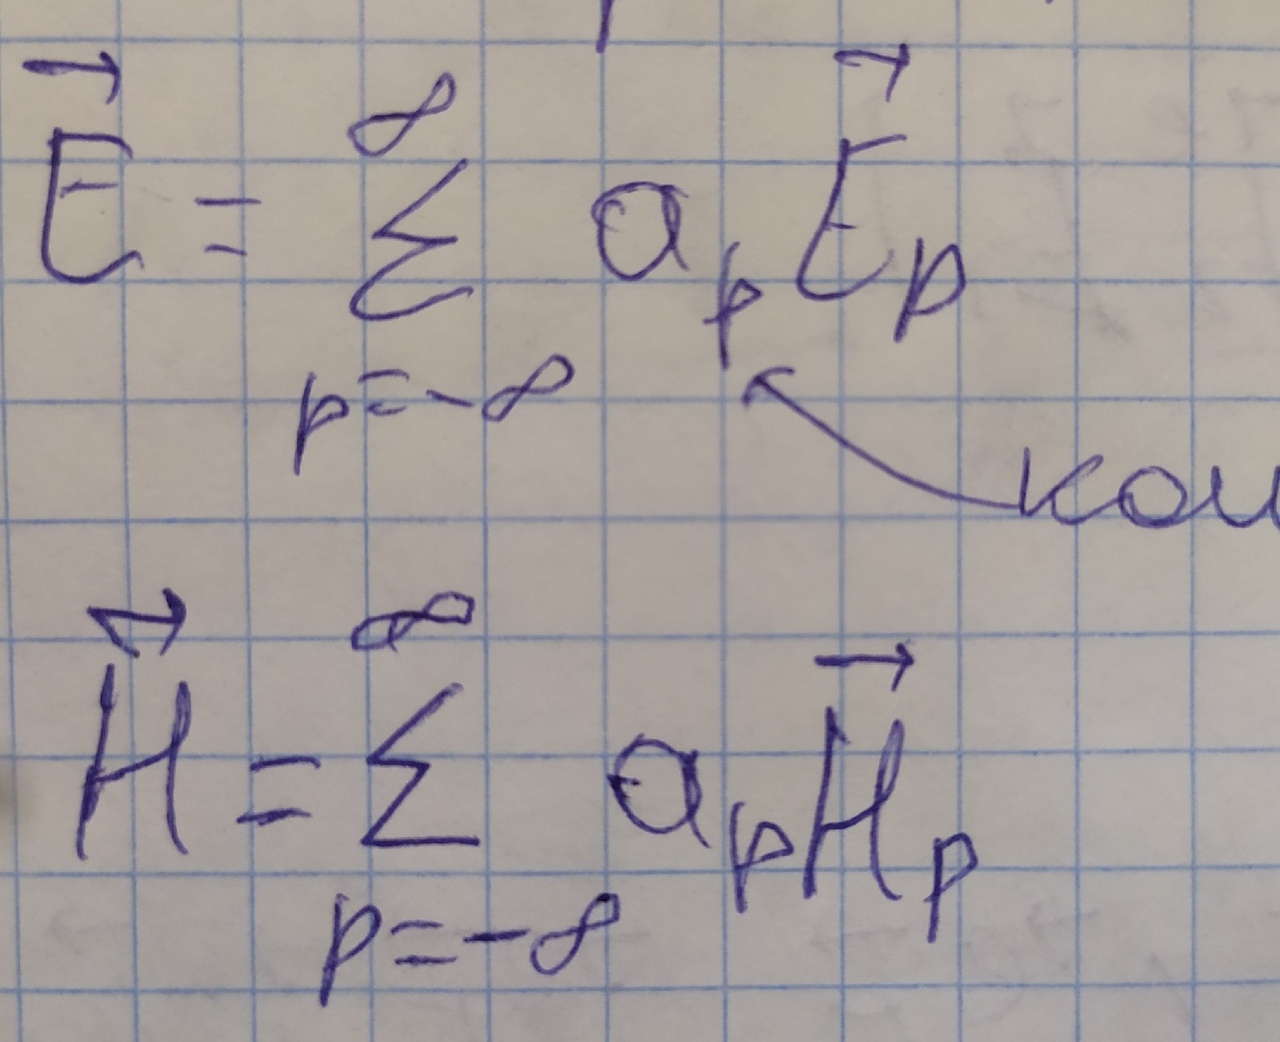 \vec{E} = \sum_{p=-\infty}^{\infty} a_p \vec{E}_p
\vec{H} = \sum_{p=-\infty}^{\infty} a_p \vec{H}_p